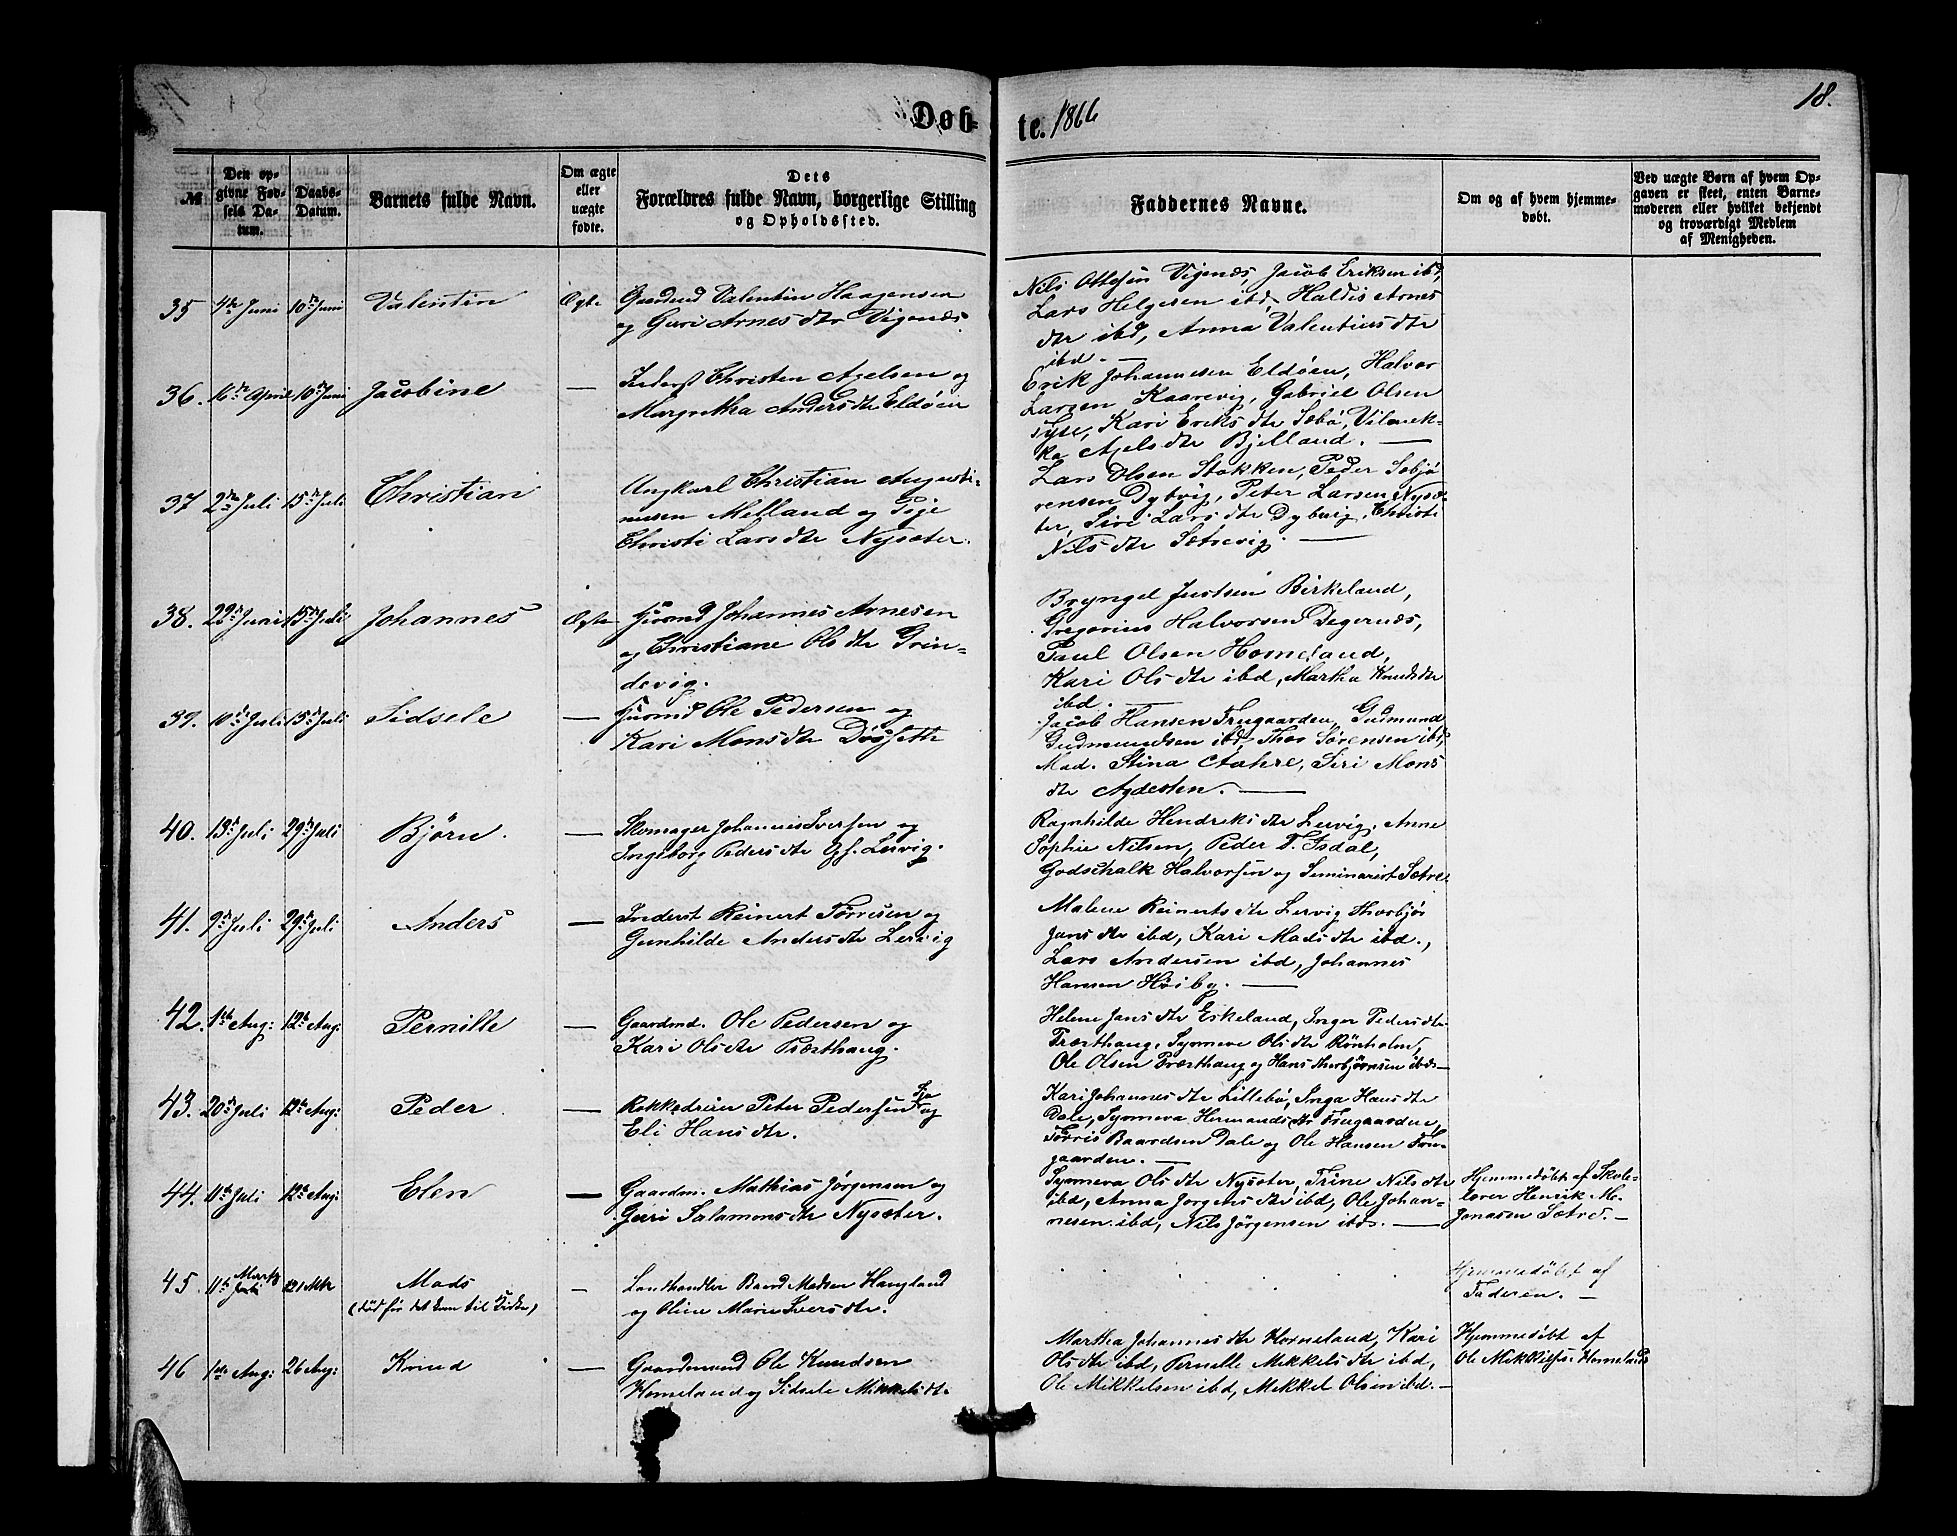 18.
Døb-
te. 1866
№
Den op-
givne Fød-
sels Da-
tum.
Daabs-
Datum.
Barnets fulde Navn.
Om ægte
eller
uægte
fødte.
Dets
Forældres fulde Navn, borgerlige Stilling
og Opholdssted.
Faddernes Navne.
Om og af hvem hjemme-
døbt.
Ved uægte Børn af hvem Op-
gaven er skeet, enten Barne-
moderen eller hvilket bekjendt
og troværdigt Medlem
af Menigheden.
35 4de Juni 10de Juni Valentin Ægte Valentin Haagensen
og Guri Arnes dtr Vigenæs
Nils Ottesen Vigenæs, Jacob Eriksen ibd,
Lars Helgesen ibd, Haldis Arnes
dtr ibd, Anna Valentins dtr
ibd. —
36. 16de April 10de Juni Jacobine — Inderst Christen Axelsen og
Margretha Anders dtr Eldøen
Erik Johannesen Eldøen, Halvor
Larsen Kaarevig, Gabriel Olsen
Kari Eriks dtr Sæbø, Vilmek-
ke Axels dtr Bjelland. —
37 2den Juli 15de Juli Christian Ungkarl Christian Augusti-
nusen Melland og Pige
Christi Lars dtr Nysæter.
Lars Olsen Stokken, Peder Sebjø
rensen Dybvig, Peter Larsen Nysæ-
ter, Siri Lars dtr Dybvig, Christi
Nils dtr Sætrevig. —
38. 29de Juni 15de Juli Johannes Ægte Johannes Arnesen
og Christiane Ols dtr Grin-
devig.
Bryngel Justsen Birkeland,
Gregorius Halvorsen Degernæs,
Paul Olsen Horneland,
Kari Ols dtr ibd, Martha Knuds dtr
ibd. —
39. 10de Juli 15de Juli Sidsele — Ole Pedersen og
Kari Mons dtr
Jacob Hansen Frugaarden, Gudmund
Gudmundsen ibd, Thor Sørensen ibd,
Mad. Stina Siri Mons
dtr —
40. 13de Juli 29de Juli Bjørn. — Skomager Johannes Iversen og
Ingeborg Peders dtr Lervig.
Ragnhilde Hendriks dtr Lervig, Anne
Sophie Nilsen, Peder T. Isdal,
Godschalk Halvorsen og Seminarist Sætre.
41. 9de Juli 29de Juli Anders — Inderst Reinert Tørresen og
Gunhilde Anders dtr Lervig
Malene Reinerts dtr Lervig Thorbjør
Jans dtr ibd, Kari Mads dtr ibd.,
Lars Andersen ibd, Johannes
Hansen Høiby. —
42. 1ste Aug: 12te Aug: Pernille — Gaardmd. Ole Pedersen og
Kari Ols dtr Præsthaug.
Helene Jans dtr Eskeland, Inger Peders dtr
Præsthaug, Synneva Ols dtr
Ole Olsen Præsthaug og Hans Thorbjørnsen ibd —
43. 20de Juli 12te Aug: Peder — Rokkedreier Peter Pedersen og
Eli Hans dtr.
Kari Johannes dtr Lillebø, Inga Hans dtr
Dale, Synneva Hermunds dtr Frugaarden,
Tørris Baardsen Dale og Ole Hansen Fru-
gaarden. —
44. 11te Juli 12te Aug: Elen — Gaardm. Mathias Jørgensen og
Guri Salamons dtr Nysæter.
Synneva Ols dtr Nysæter, Trine Nils dtr
ibd, Anna Jørgens dtr ibd, Ole Johan-
nesen ibd, Nils Jørgensen ibd. —
Hjemmedøbt af Skole-
lærer Henrik M.
Jonasen Sætre. —
45. 11te Marts 21 Mts Mads
(død før det kom til Kirke)
— Landhandler Baard Madsen Haugland
og Oline Marie Ivers dtr.
Hjemmedøbt af
Faderen. —
46 1ste Aug: 26 Aug: Knud — Gaardmand Ole Knudsen
Horneland og Sidsele Mikkels dtr
Martha Johannes dtr Horneland, Kari
Ols dtr ibd, Pernille Mikkels dtr ibd,
Ole Mikkelsen ibd, Mikkel Olsen ibd. —
Hjemmedøbt af
Ole Mikkelsen Horneland